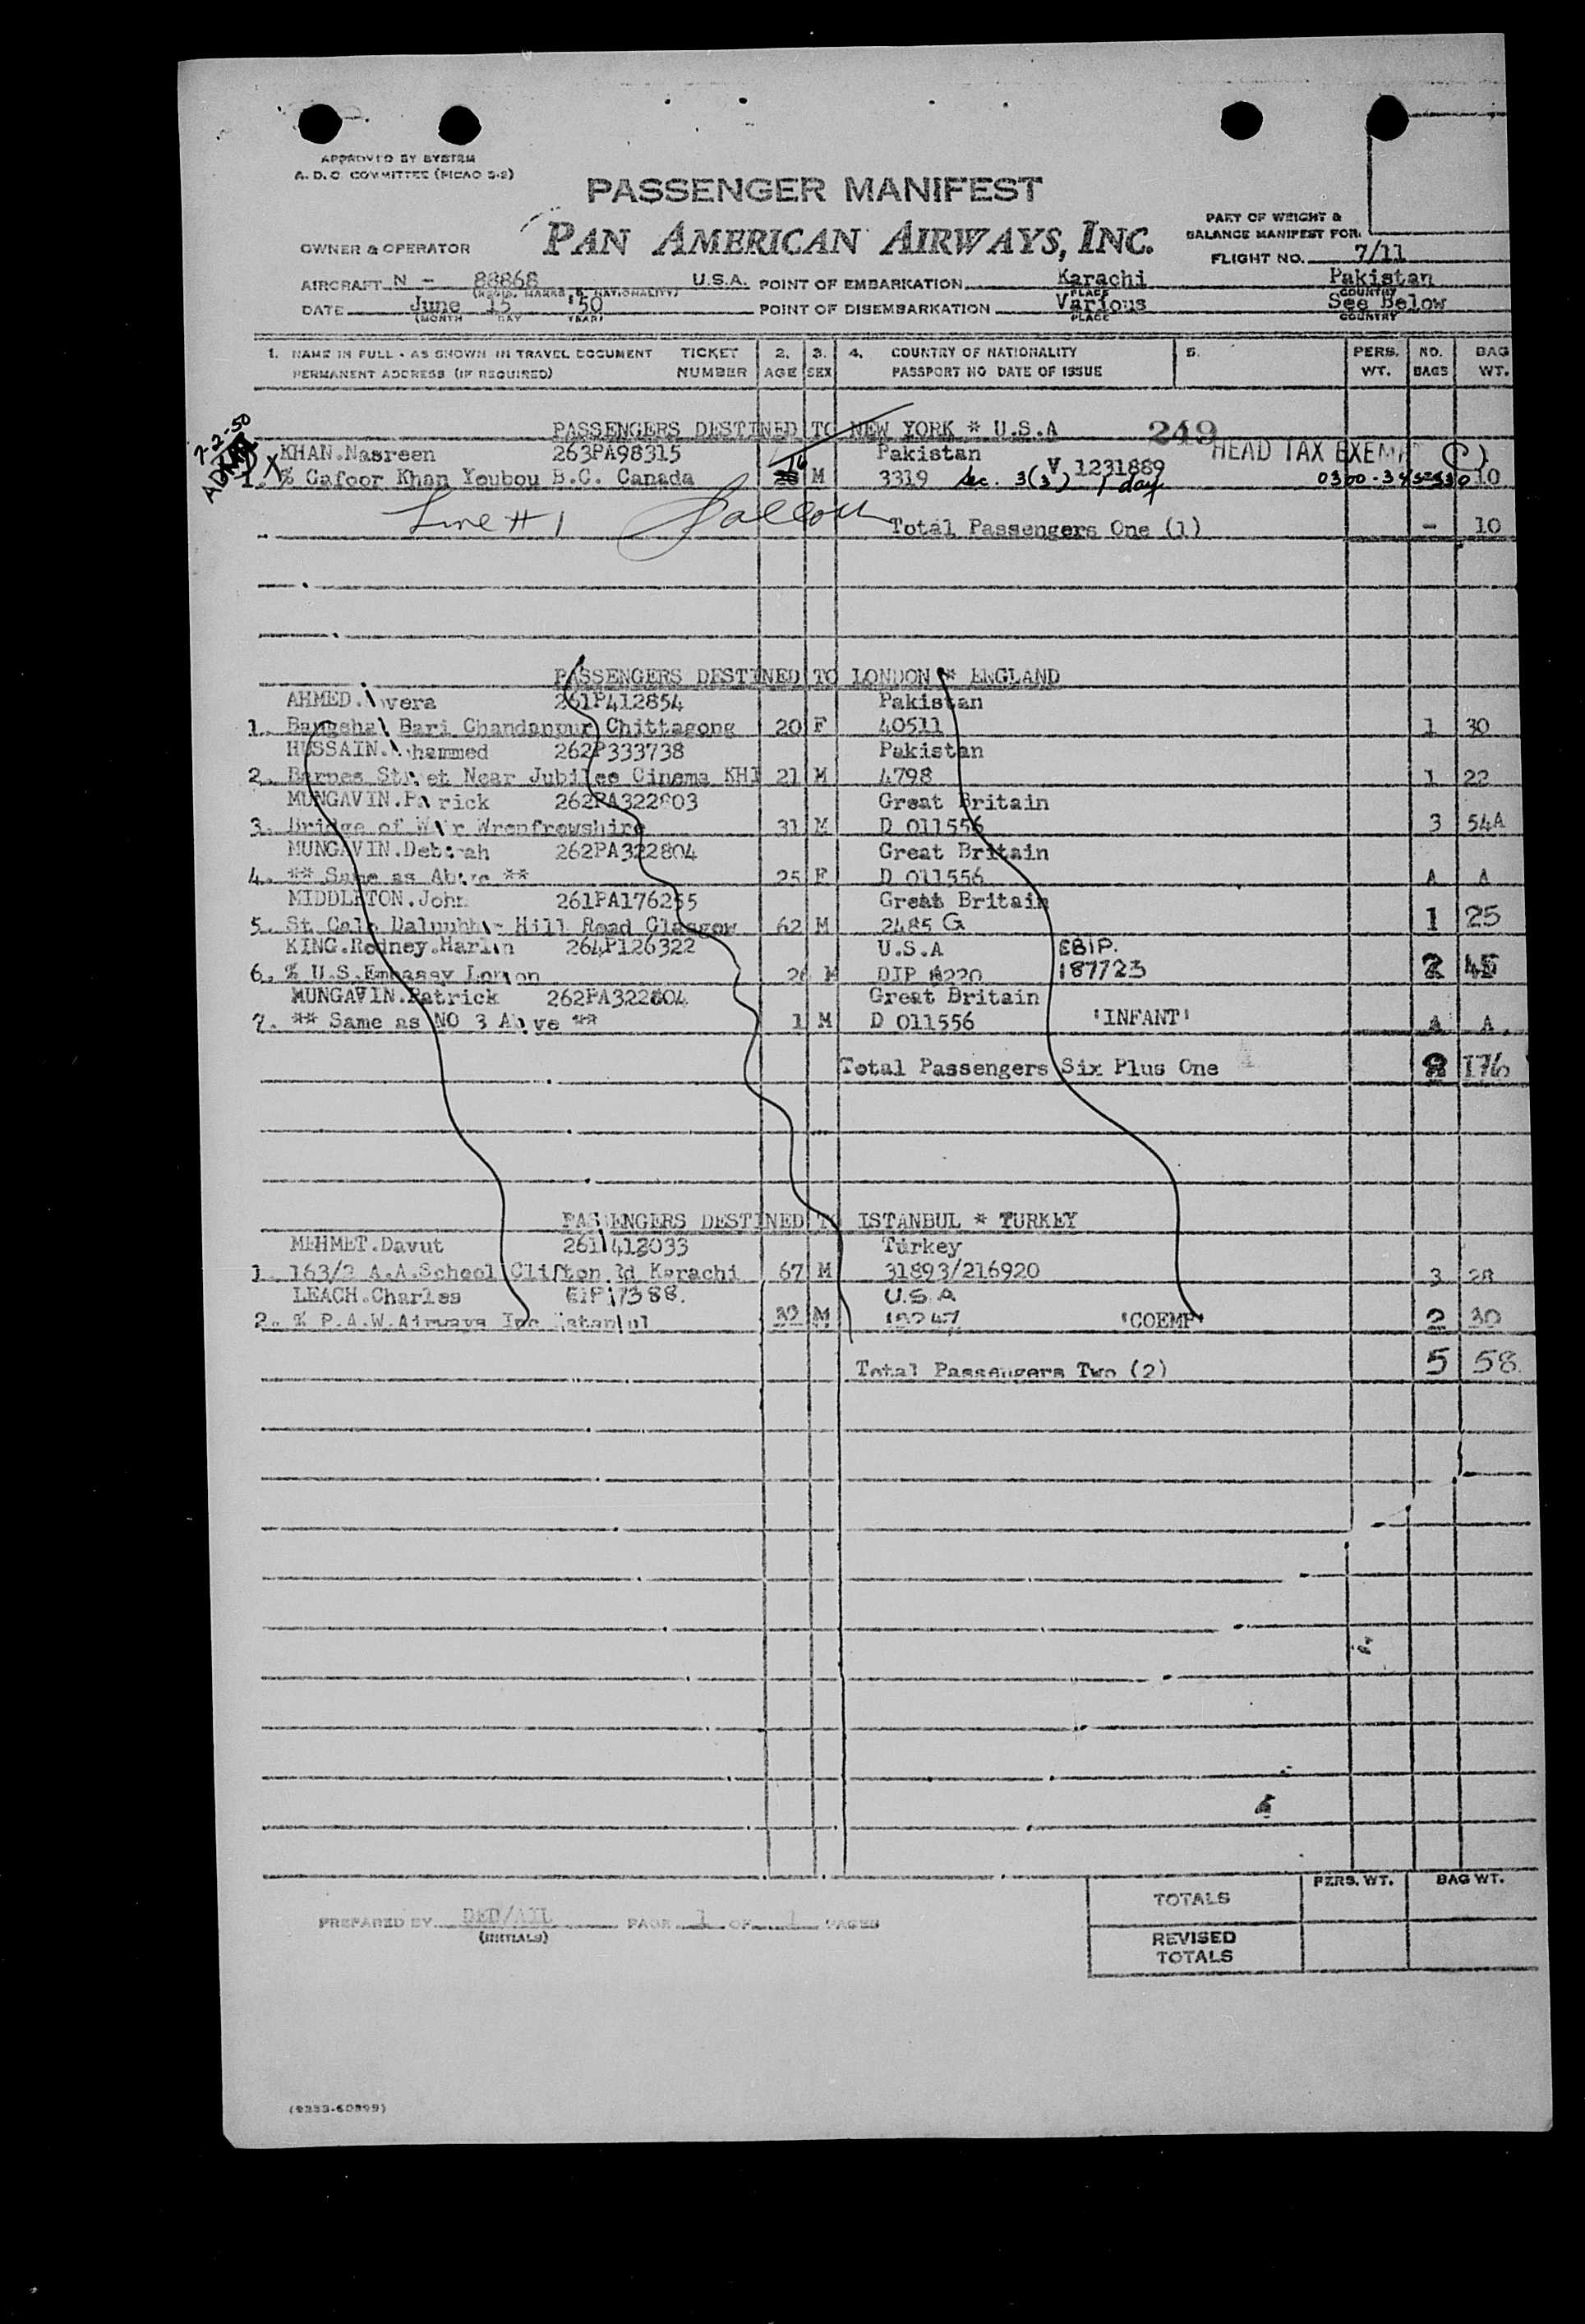 APPROVED BY SYSTEM
A. D. C. COMMITTEE (PICAO S-2)
PASSENGER MANIFEST
PAN AMERICAN AIRWAYS, INC.
PART OF WEIGHT &
BALANCE MANIFEST FOR
OWNER & OPERATOR
FLIGHT NO. 7/11
AIRCRAFT N - 88868 U.S.A. POINT OF EMBARKATION Karachi Pakistan
(REGIS. MARKS & NATIONALITY) PLACE COUNTRY
DATE June 15 '50 POINT OF DISEMBARKATION Various See Below
(MONTH DAY YEAR) PLACE COUNTRY
1. NAME IN FULL - AS SHOWN IN TRAVEL DOCUMENT TICKET 2. 3. 4. COUNTRY OF NATIONALITY 5. PERS. NO. BAG
PERMANENT ADDRESS (IF REQUIRED) NUMBER AGE SEX PASSPORT NO DATE OF ISSUE WT. BAGS WT.
7-2-50
PASSENGERS DESTINED TO NEW YORK * U.S.A 249
KHAN.Nasreen 263PA98315 Pakistan HEAD TAX EXEMPT (C)
1. % Gafoor Khan Youbou B.C. Canada M 3319 Sec. 3(3) 1 day V 1231889 10
Line # 1 Total Passengers One (1) - 10
PASSENGERS DESTINED TO LONDON * ENGLAND
AHMED. vera 261P412854 Pakistan
1. Bangshal Bari Chandanpur Chittagong 20 F 40511 1 30
HUSSAIN. hammed 262P333738 Pakistan
2. Barnes Street Near Jubilee Cinema KHI 21 M 4798 1 22
MUNGAVIN.Patrick 262PA322803 Great Britain
3. Bridge of Weir Wrenfrewshire 31 M D 011556 3 54A
MUNGAVIN.Deborah 262PA322804 Great Britain
4. ** Same as Above ** 25 F D 011556 A A
MIDDLETON.John 261PA176255 Great Britain
5. St. Hill Road Glasgow 62 M 2485 G 1 25
KING.Rodney.Harlan 264P126322 U.S.A EBIP.
6. % U.S.Embassy London 26 M DIP 6220 187723 2 45
MUNGAVIN.Patrick 262PA322804 Great Britain
7. ** Same as NO 3 Above ** 1 M D 011556 'INFANT' A A
Total Passengers Six Plus One 8 176
PASSENGERS DESTINED TO ISTANBUL * TURKEY
MEHMET.Davut 261 412033 Turkey
1. 163/2 A.A.School Clifton Rd Karachi 67 M 31893/216920 3 28
LEACH.Charles EIP17388. U.S.A
2. % P.A.W.Airways Inc Istanbul 32 M 18247 'COEMP' 2 30
Total Passengers Two (2) 5 58
PERS. WT. BAG WT.
TOTALS
PREPARED BY DED/AIL PAGE 1 OF 1 PAGES
(INITIALS)
REVISED
TOTALS